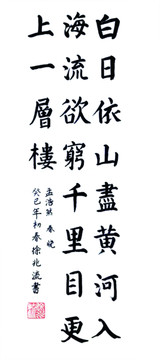 白日依山盡黄河入
海流欲窮千里目更
上一層樓
孟浩然 春曉
癸巳年初春徐兆流書